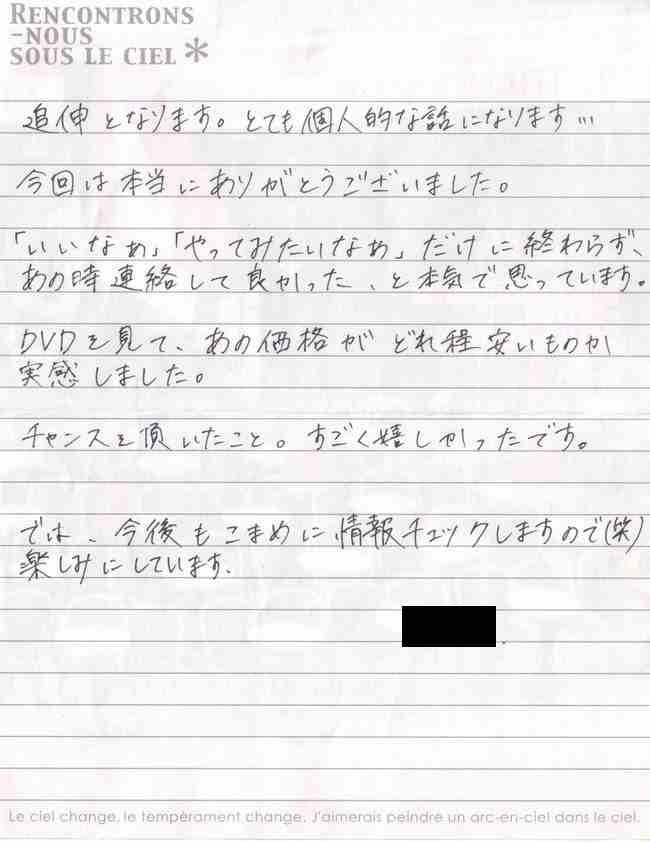 RENCONTRONS
-NOUS
SOUS LE CIEL*
追伸となります。とても個人的な話になります…
今回は本当にありがとうございました。
「いいなぁ」「やってみたいなぁ」だけに終わらず、
あの時連絡して良かった、と本気で思っています。
DVDを見て、あの価格がどれ程安いものか
実感しました。
チャンスを頂いたこと。すごく嬉しかったです。
では、今後もこまめに情報チェックしますので(笑)
楽しみにしています.
Le ciel change, le tempèrament change. J'aimerais peindre un arc-en-ciel dans le ciel.